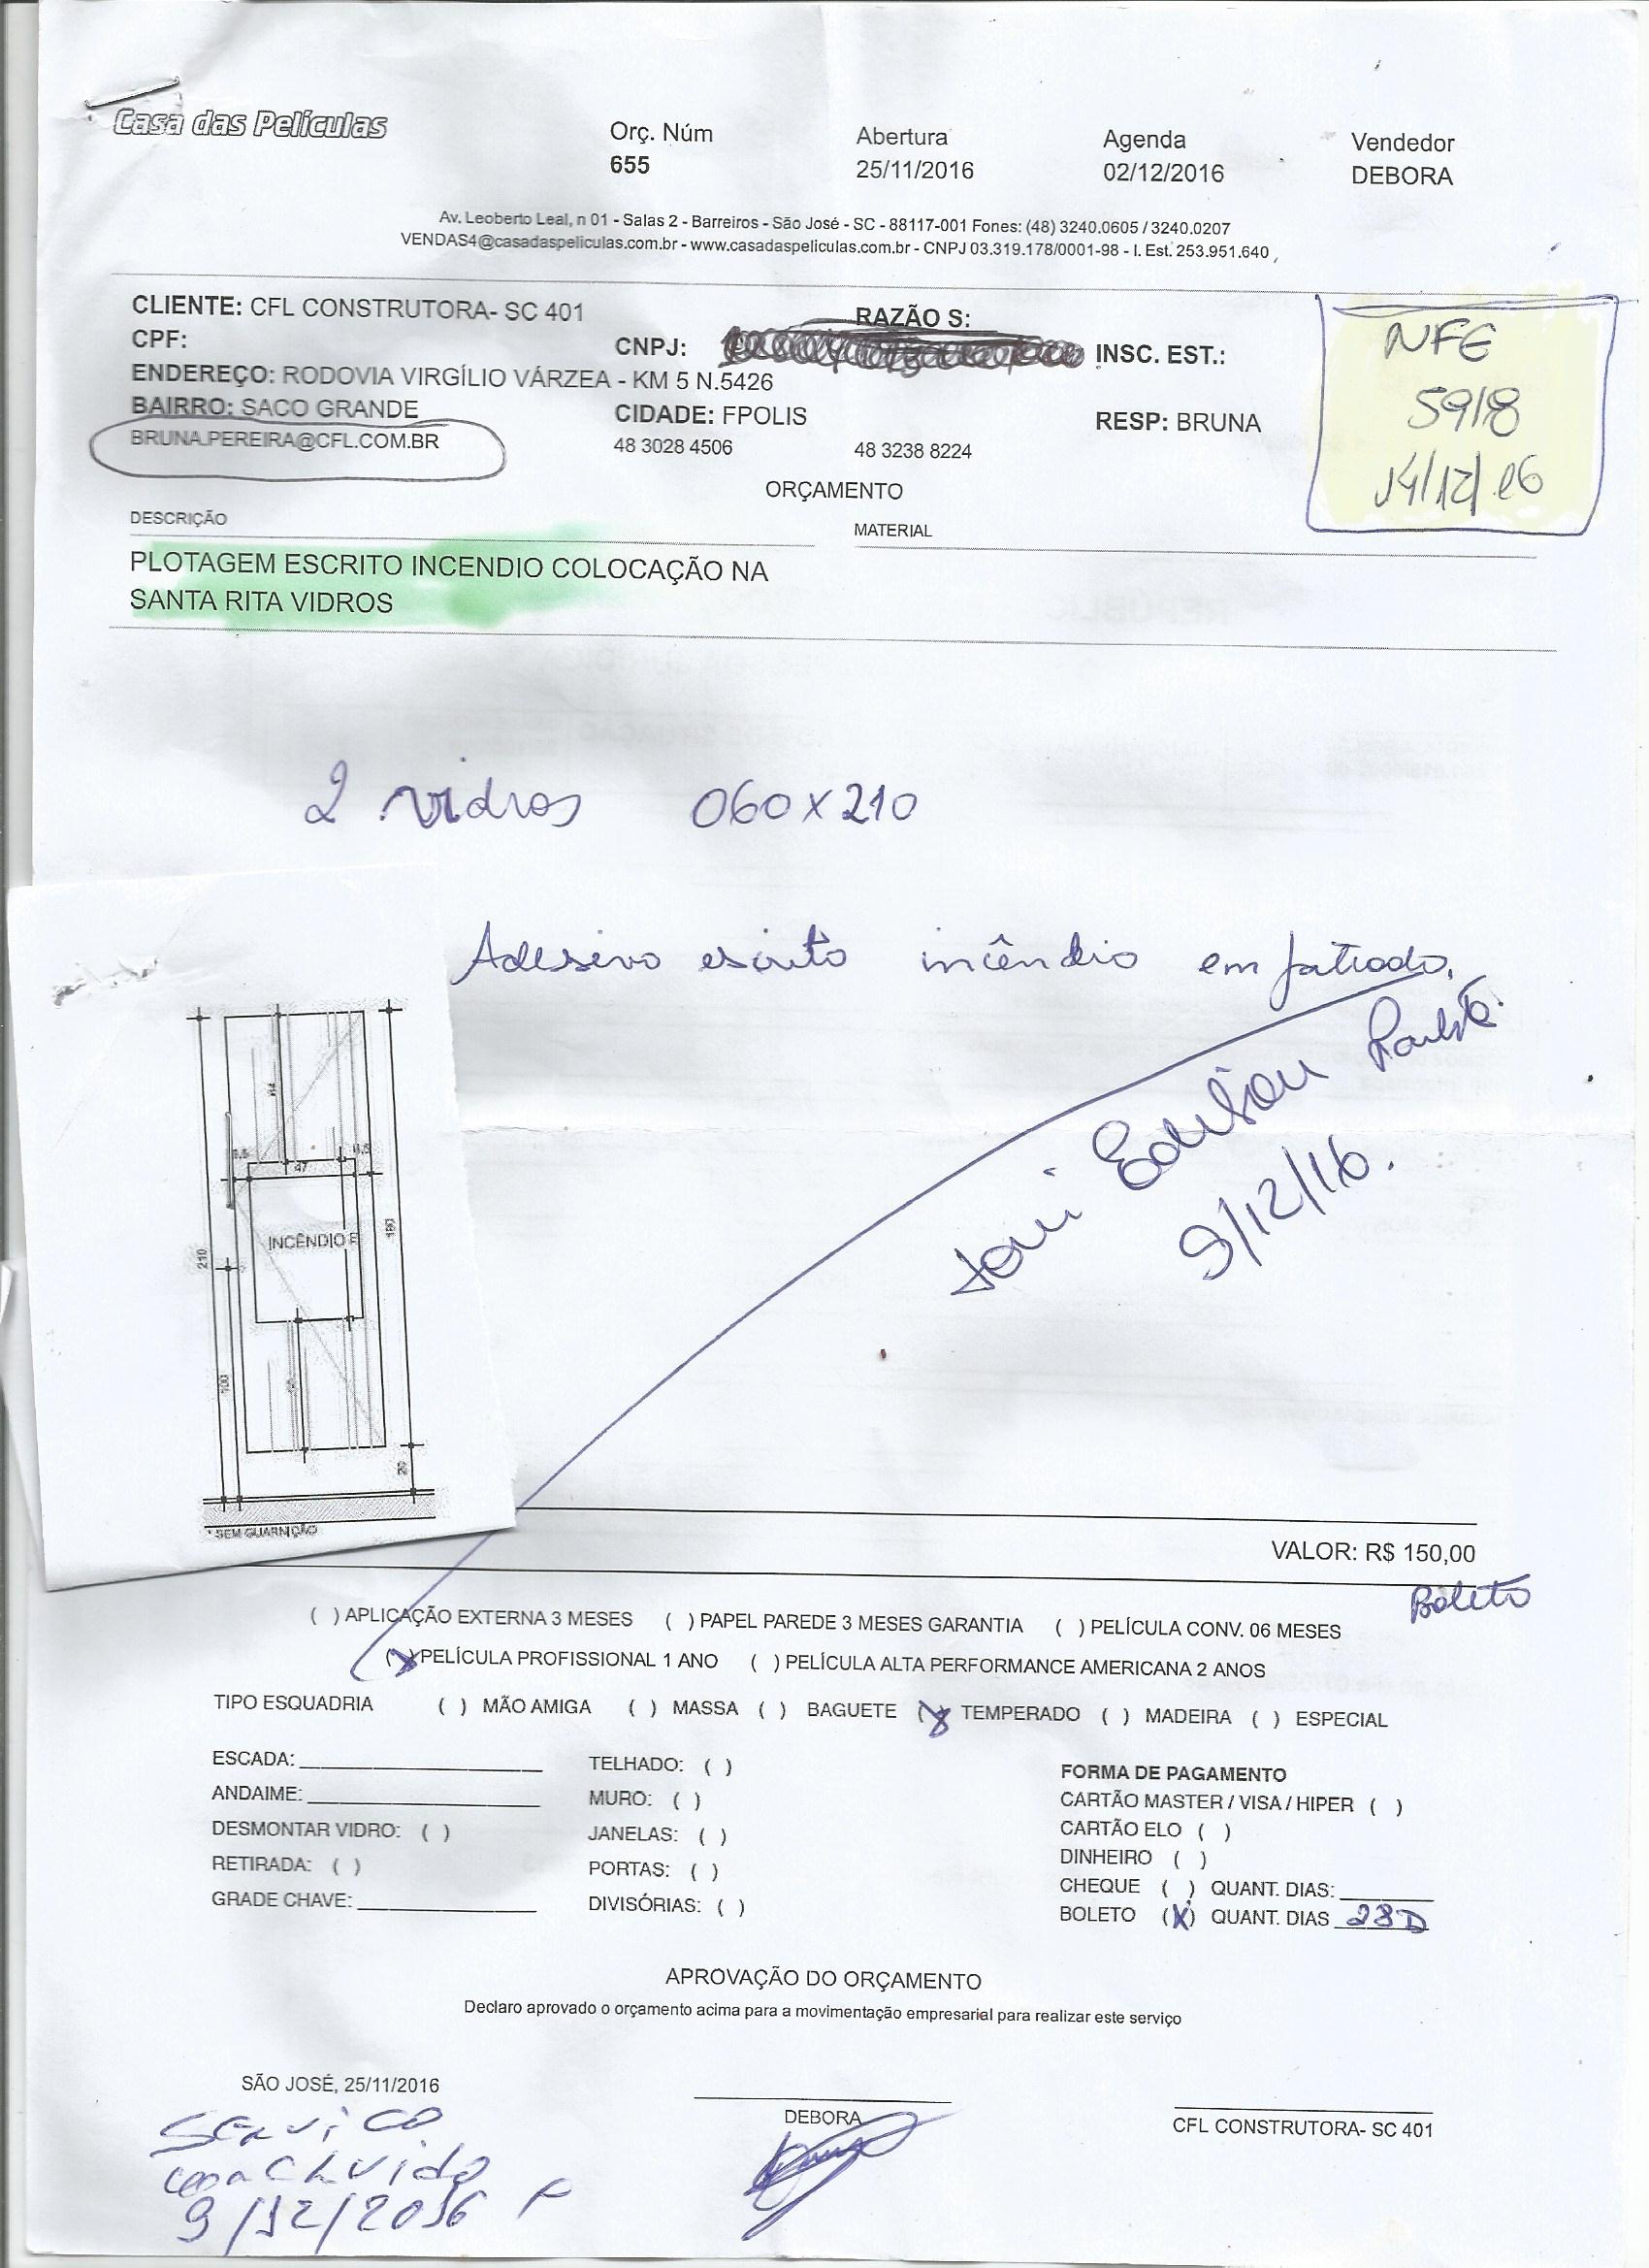 Casa das Películas
Orç. Núm
655
Abertura
25/11/2016
Agenda
02/12/2016
Vendedor
DEBORA
Av. Leoberto Leal, n 01 - Salas 2 - Barreiros - São José - SC - 88117-001 Fones: (48) 3240.0605 / 3240.0207
VENDAS4@casadaspeliculas.com.br - www.casadaspeliculas.com.br - CNPJ 03.319.178/0001-98 - I. Est. 253.951.640
CLIENTE: CFL CONSTRUTORA- SC 401
RAZÃO S:
CPF:
CNPJ:
INSC. EST.:
ENDEREÇO: RODOVIA VIRGÍLIO VÁRZEA - KM 5 N.5426
BAIRRO: SACO GRANDE
CIDADE: FPOLIS
RESP: BRUNA
BRUNA.PEREIRA@CFL.COM.BR
48 3028 4506
48 3238 8224
NFE
5918
14/12/16
ORÇAMENTO
DESCRIÇÃO
MATERIAL
PLOTAGEM ESCRITO INCENDIO COLOCAÇÃO NA
SANTA RITA VIDROS
2 vidros 060 x 210
Adesivo escrito incêndio em jatiado.
Edilson
9/12/16.
47
INCÊNDIO
210
180
100
20
* SEM GUARNIÇÃO
VALOR: R$ 150,00
Boleto
( ) APLICAÇÃO EXTERNA 3 MESES ( ) PAPEL PAREDE 3 MESES GARANTIA ( ) PELÍCULA CONV. 06 MESES
(X) PELÍCULA PROFISSIONAL 1 ANO ( ) PELÍCULA ALTA PERFORMANCE AMERICANA 2 ANOS
TIPO ESQUADRIA ( ) MÃO AMIGA ( ) MASSA ( ) BAGUETE (X) TEMPERADO ( ) MADEIRA ( ) ESPECIAL
ESCADA:
TELHADO: ( )
FORMA DE PAGAMENTO
ANDAIME:
MURO: ( )
CARTÃO MASTER / VISA / HIPER ( )
DESMONTAR VIDRO: ( )
JANELAS: ( )
CARTÃO ELO ( )
RETIRADA: ( )
PORTAS: ( )
DINHEIRO ( )
GRADE CHAVE:
DIVISÓRIAS: ( )
CHEQUE ( ) QUANT. DIAS:
BOLETO (X) QUANT. DIAS 28D
APROVAÇÃO DO ORÇAMENTO
Declaro aprovado o orçamento acima para a movimentação empresarial para realizar este serviço
SÃO JOSÉ, 25/11/2016
DEBORA
CFL CONSTRUTORA- SC 401
SERVICO
concluido
9/12/2016